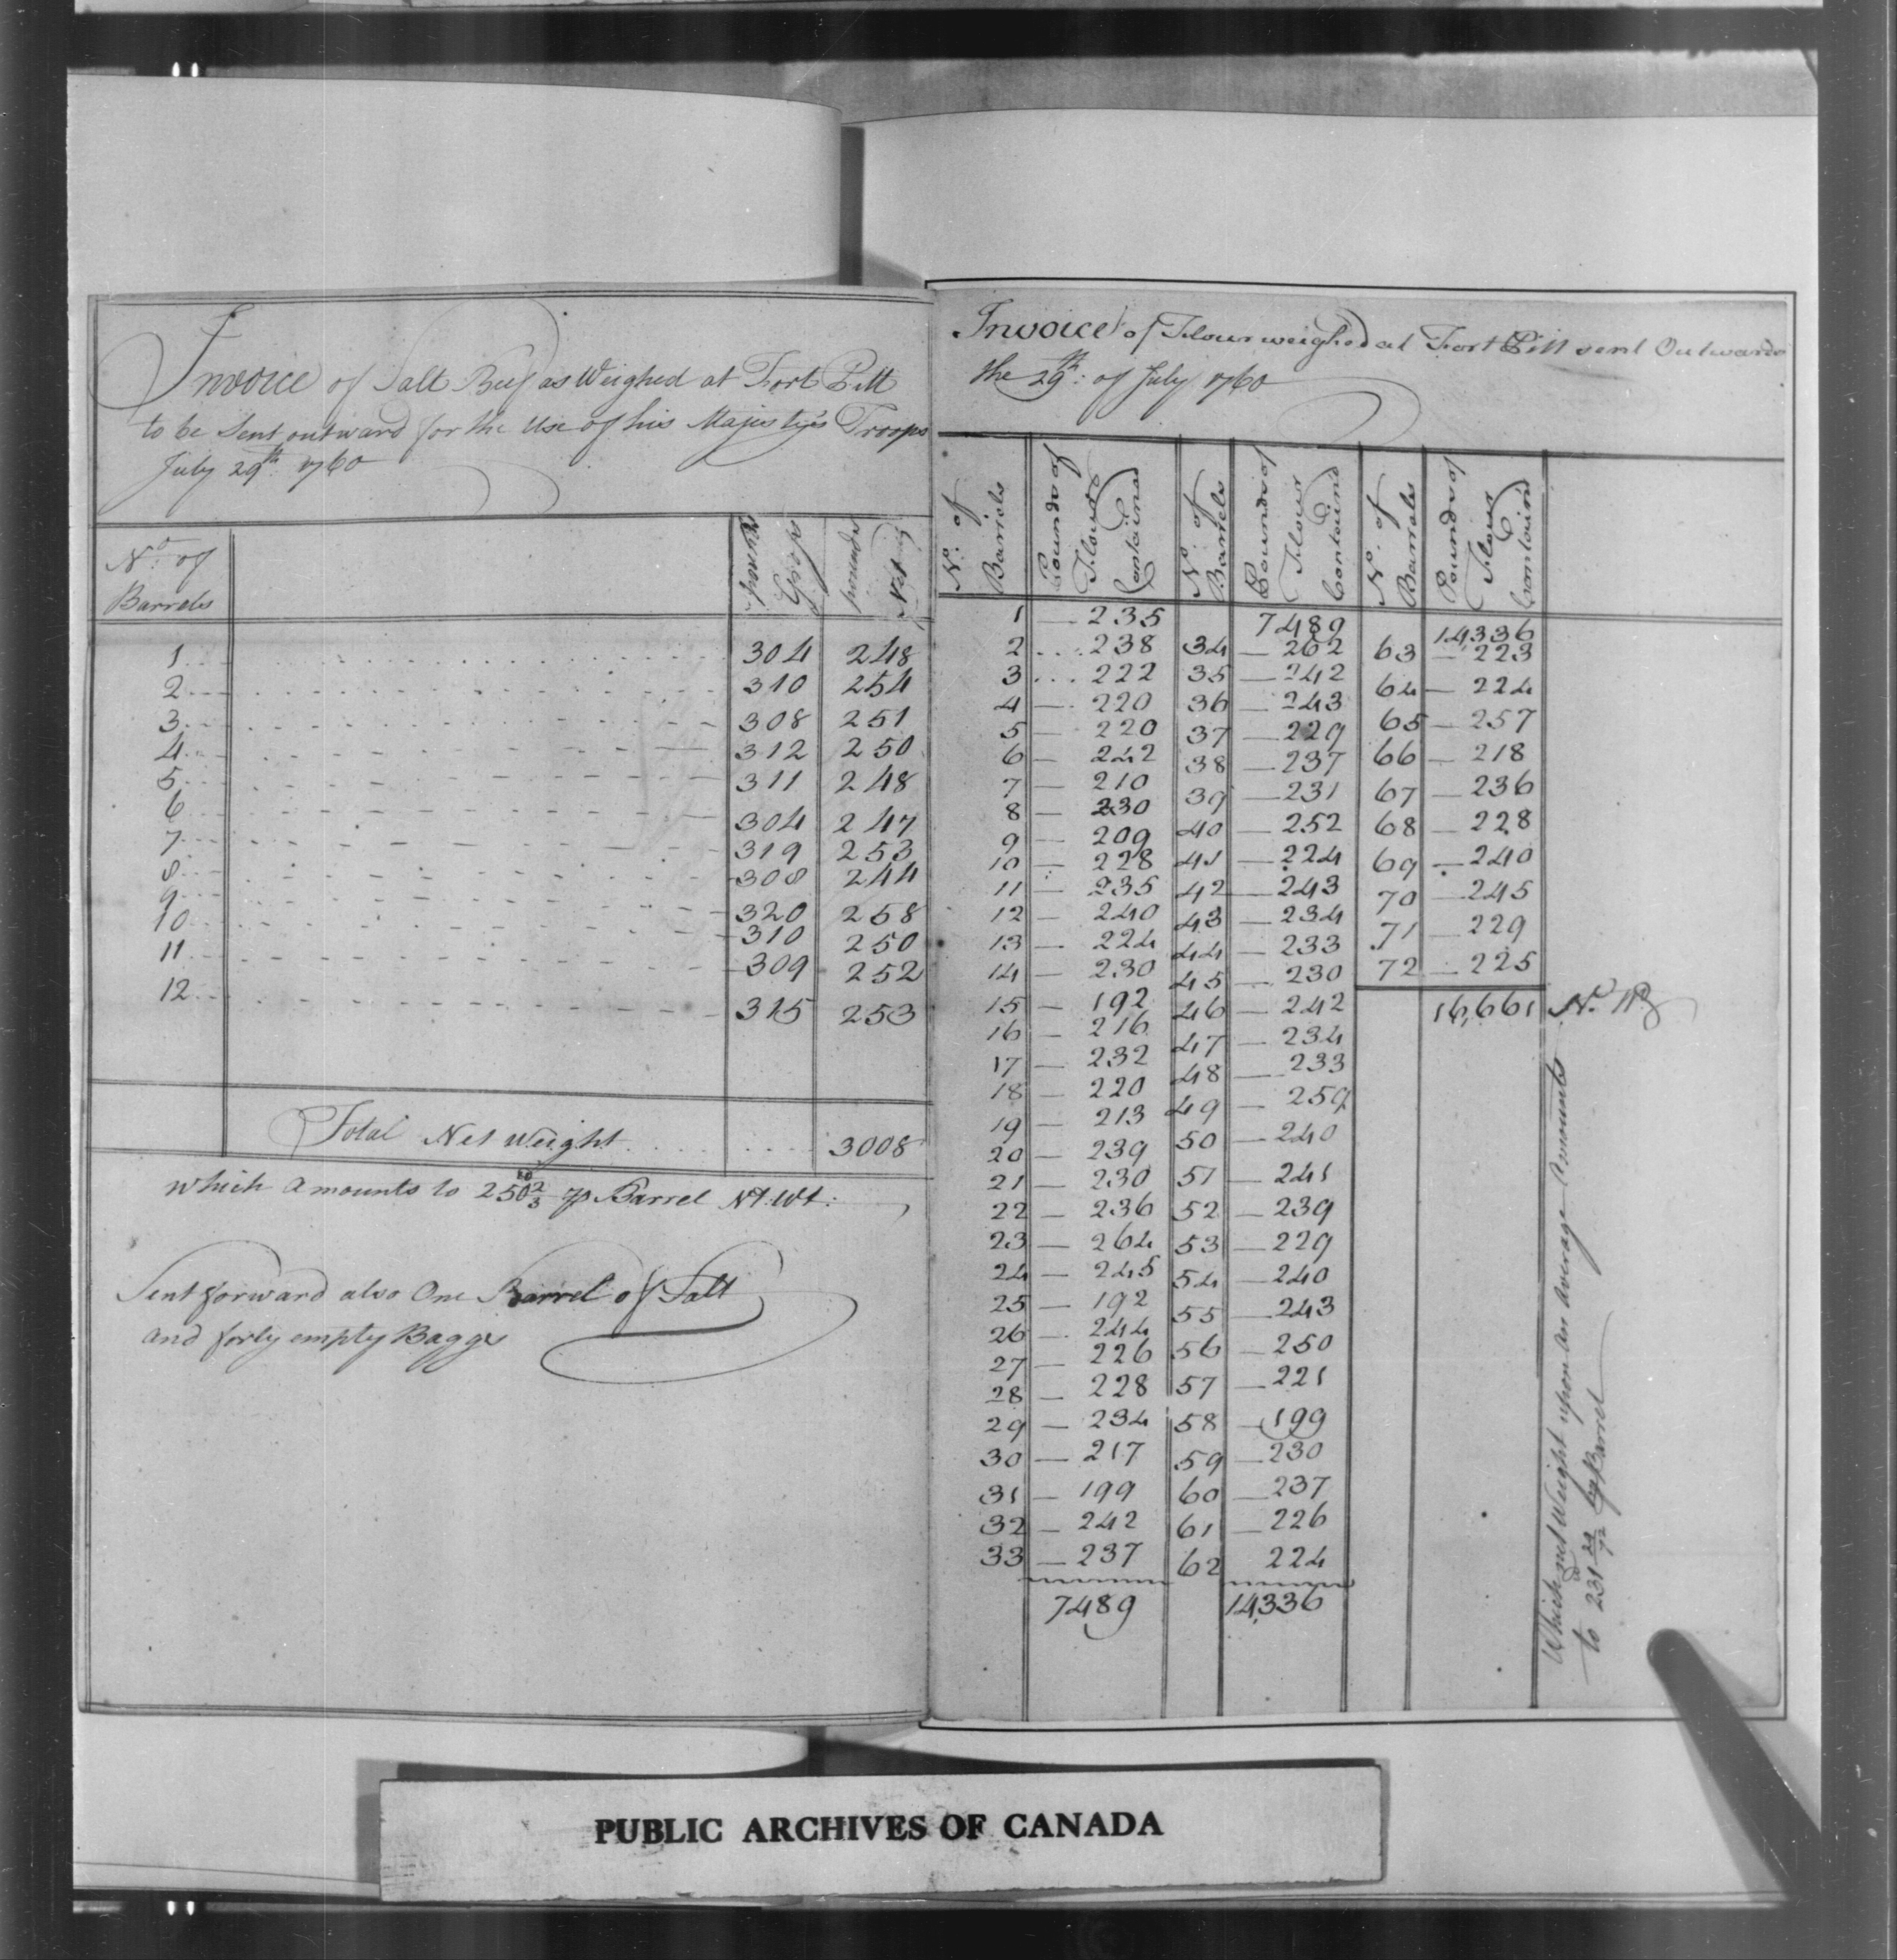 Invoice of Salt Beef as Weighed at Fort Pitt
to be Sent outward for the Use of his Majesty's Troops
July 29th: 1760
No. of Barrels | pounds Gross | pounds Net
1 304 248
2 310 254
3 308 251
4 312 250
5 311 248
6 304 247
7 319 253
8 308 244
9 320 258
10 310 250
11 309 252
12 315 253
Total Net Weight 3008
which amounts to 250 2/3 p Barrel Nt: Wt:
Sent forward also One Barrel of Salt
and forty empty Baggs
Invoice of Flour weighed at Fort Pitt sent Outwards
the 29th: of July 1760
No. of Barrels | Pounds of Flour Contained | No. of Barrels | Pounds of Flour Contained | No. of Barrels | Pounds of Flour Contained
1 235 7489 14,336
2 238 34 262 63 223
3 222 35 242 64 224
4 220 36 243 65 257
5 220 37 229 66 218
6 242 38 237 67 236
7 210 39 231 68 228
8 230 40 252 69 240
9 209 41 224 70 245
10 228 42 243 71 229
11 235 43 234 72 225
12 240 44 233 16,661 Nt. Wt
13 224 45 230
14 230 46 242
15 192 47 234
16 216 48 233
17 232 49 259
18 220 50 240
19 213 51 241
20 239 52 239
21 230 53 229
22 236 54 240
23 264 55 243
24 245 56 250
25 192 57 221
26 244 58 199
27 226 59 230
28 228 60 237
29 234 61 226
30 217 62 224
31 199
32 242
33 237
7489 14,336
Which net Weight upon an average Amounts
to 231 29/72 p Barrel
PUBLIC ARCHIVES OF CANADA